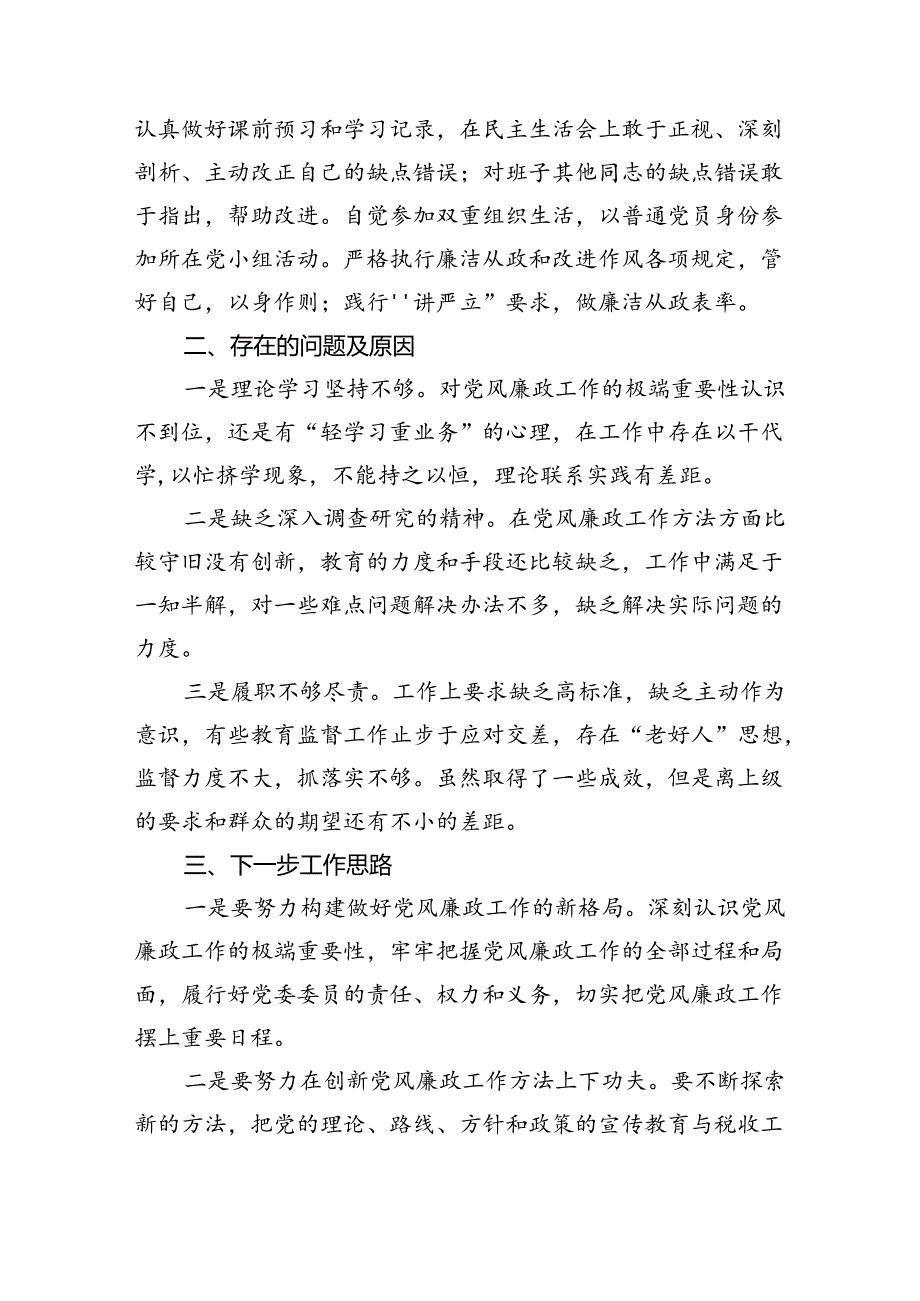 认真做好课前预习和学习记录，在民主生活会上敢于正视、深刻
剖析、主动改正自己的缺点错误；对班子其他同志的缺点错误敢
于指出，帮助改进。自觉参加双重组织生活，以普通党员身份参
加所在党小组活动。严格执行廉洁从政和改进作风各项规定，管
好自己，以身作则；践行''讲严立”要求，做廉洁从政表率。
二、存在的问题及原因
一是理论学习坚持不够。对党风廉政工作的极端重要性认识
不到位，还是有“轻学习重业务”的心理，在工作中存在以干代
学,以忙挤学现象，不能持之以恒，理论联系实践有差距。
二是缺乏深入调查研究的精神。在党风廉政工作方法方面比
较守旧没有创新，教育的力度和手段还比较缺乏，工作中满足于
一知半解，对一些难点问题解决办法不多，缺乏解决实际问题的
力度。
三是履职不够尽责。工作上要求缺乏高标准，缺乏主动作为
意识，有些教育监督工作止步于应对交差，存在“老好人”思想，
监督力度不大，抓落实不够。虽然取得了一些成效，但是离上级
的要求和群众的期望还有不小的差距。
三、下一步工作思路
一是要努力构建做好党风廉政工作的新格局。深刻认识党风
廉政工作的极端重要性，牢牢把握党风廉政工作的全部过程和局
面，履行好党委委员的责任、权力和义务，切实把党风廉政工作
摆上重要日程。
二是要努力在创新党风廉政工作方法上下功夫。要不断探索
新的方法，把党的理论、路线、方针和政策的宣传教育与税收工